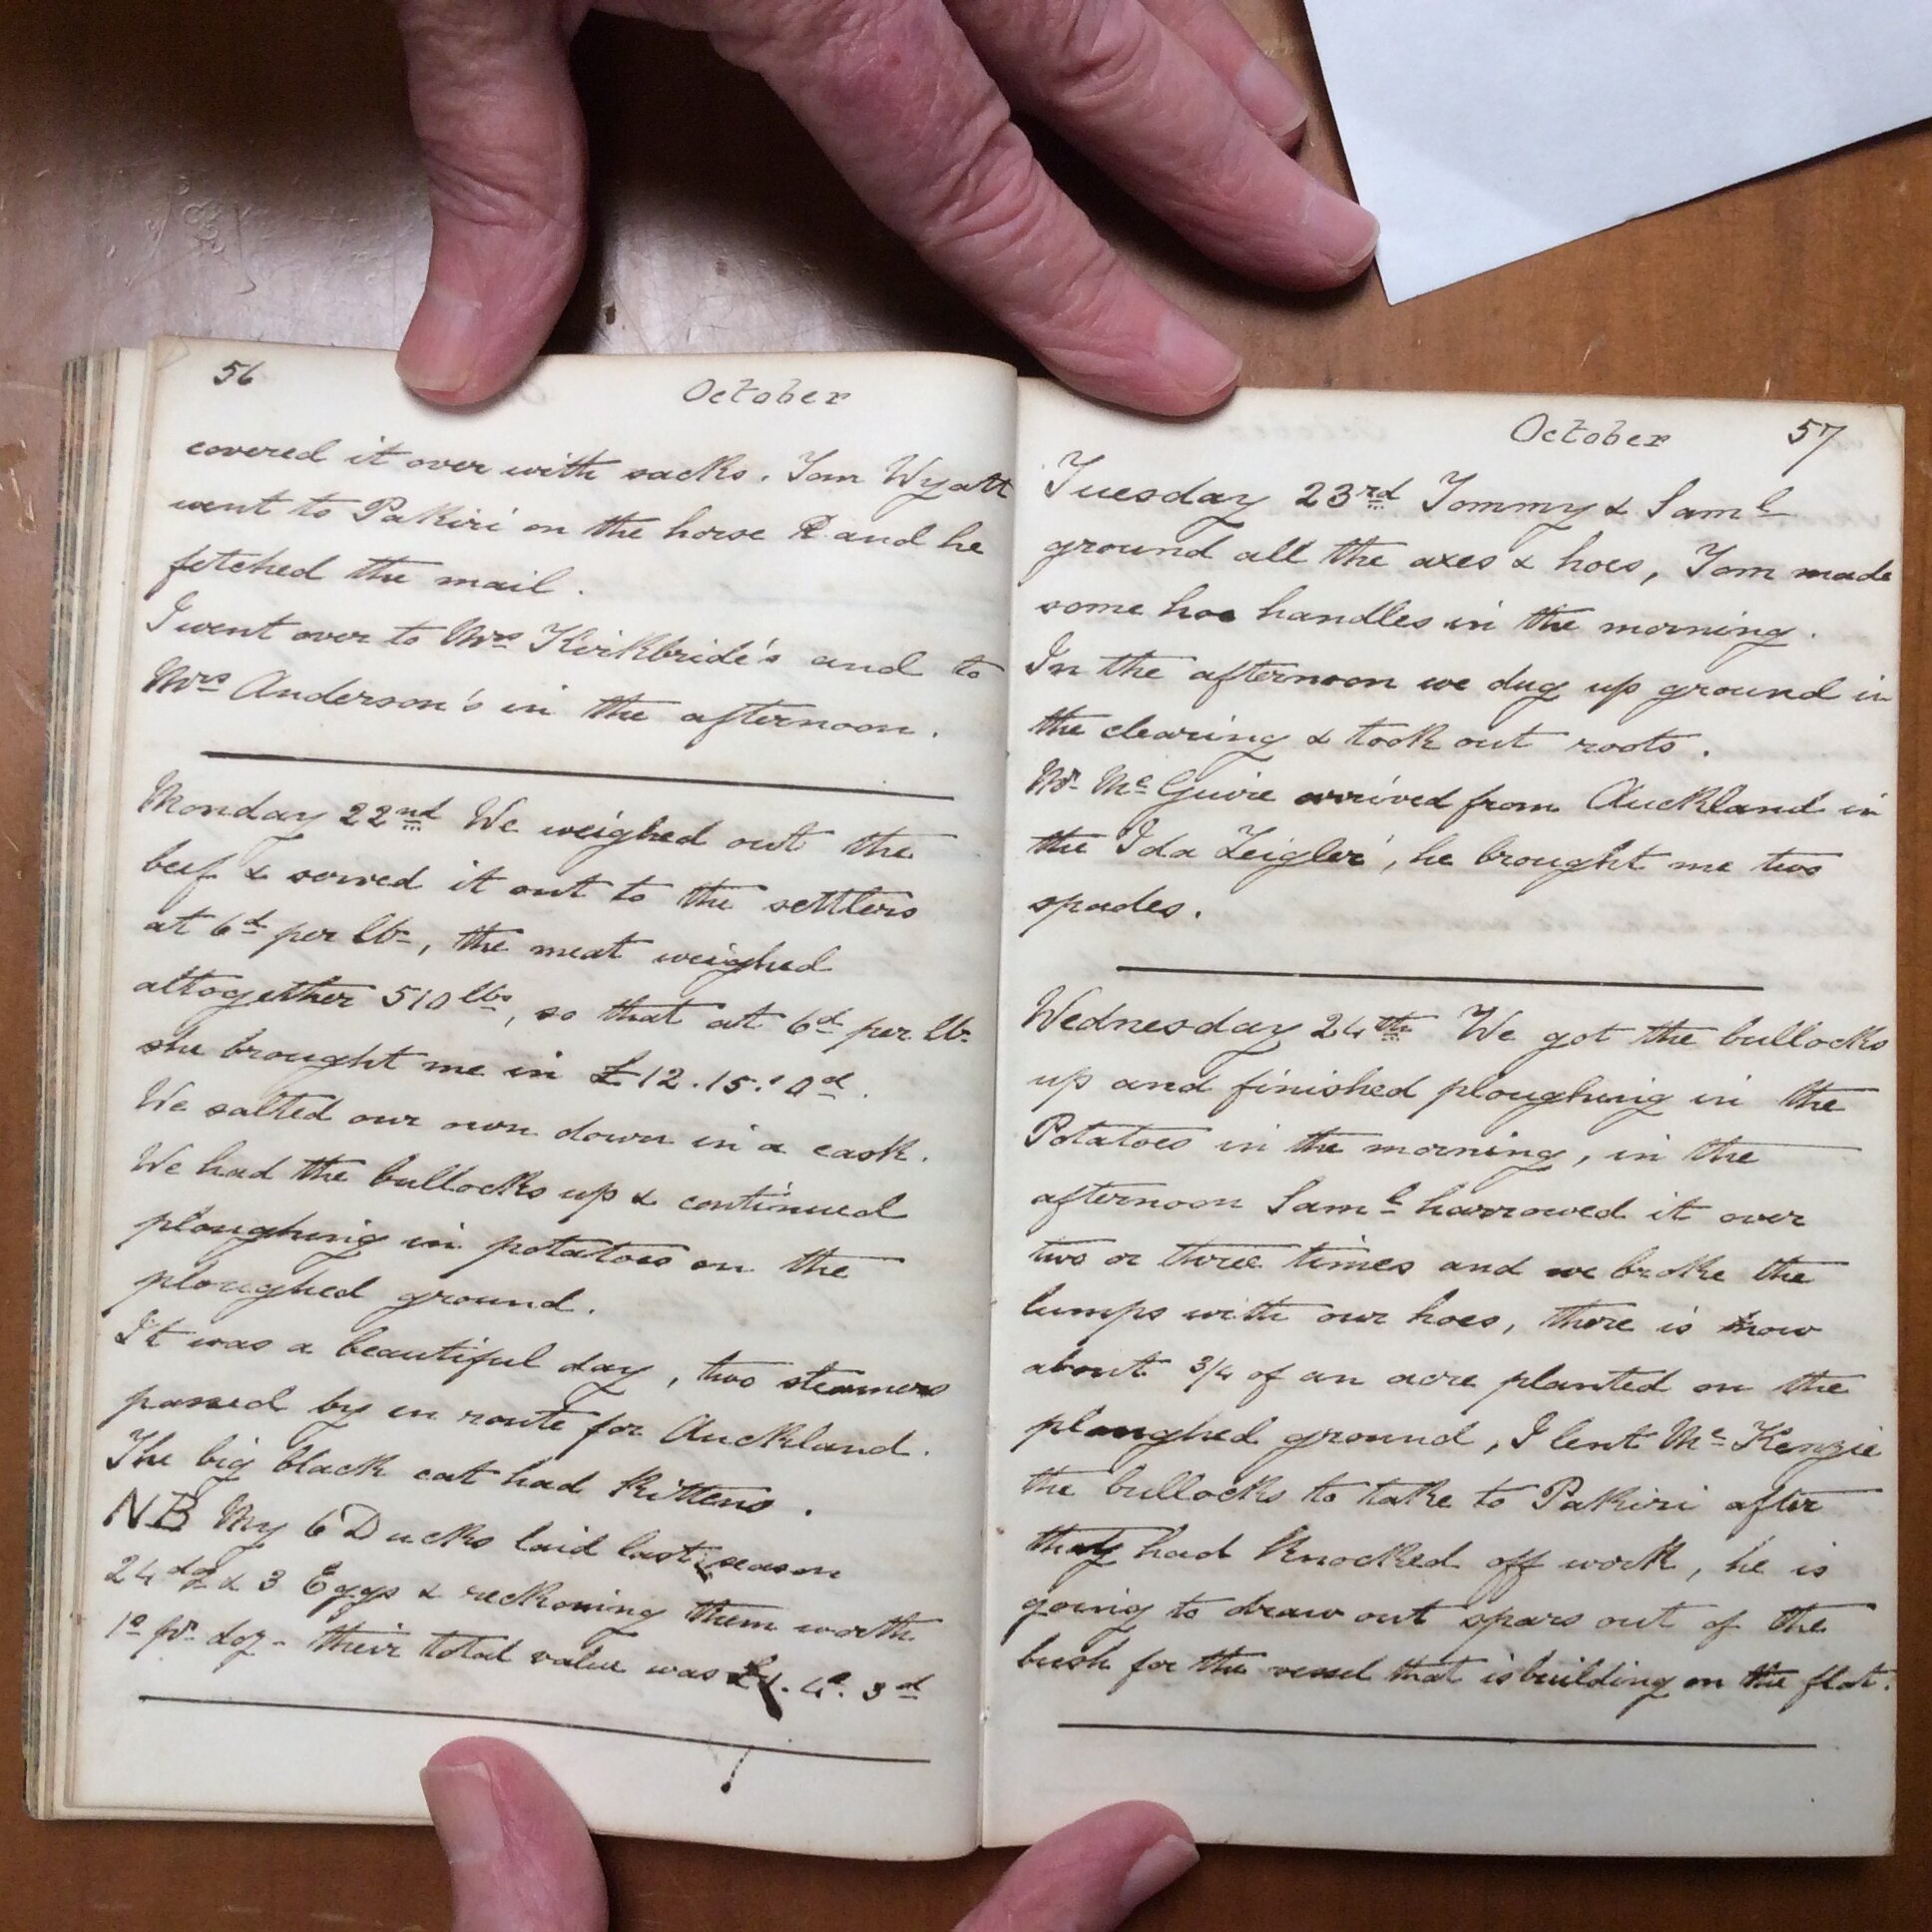 56 October
covered it over with sacks. Tom Wyatt
went to Pakiri on the horse & and he
fetched the mail.
I went over to Mrs Kirkbride's and to
Mrs Anderson's in the afternoon.
Monday 22nd We weighed out the
beef & served it out to the settlers
at 6d per lb, the meat weighed
altogether 510 lbs, so that at 6d per lb
she brought me in £12.15.0d.
We salted our own down in a cask.
We had the bullocks up & continued
ploughing in potatoes on the
ploughed ground.
It was a beautiful day, two steamers
passed by en route for Auckland.
The big black cat had kittens.
NB My 6 Ducks laid last season
24 doz & 3 Eggs & reckoning them worth
1s pr doz - their total value was £1. 4s. 3d
October 57
Tuesday 23rd Tommy & Saml
ground all the axes & hoes, Tom made
some hoe handles in the morning.
In the afternoon we dug up ground in
the clearing & took out roots.
Mr McGuire arrived from Auckland in
the 'Ida Zeigler', he brought me two
spades.
Wednesday 24th We got the bullocks
up and finished ploughing in the
Potatoes in the morning, in the
afternoon Saml harrowed it over
two or three times and we broke the
lumps with our hoes, there is now
about 3/4 of an acre planted on the
ploughed ground, I lent McKenzie
the bullocks to take to Pakiri after
they had knocked off work, he is
going to draw out spars out of the
bush for the vessel that is building on the flat.